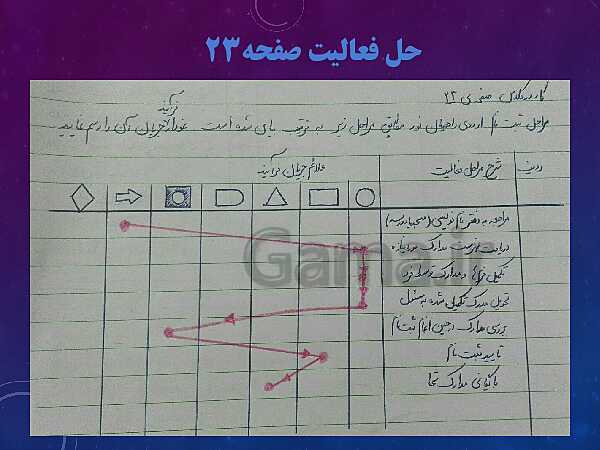 حل فعالیت صفحه ۲۳
کار در کلاس صفحه ی ۲۳
فرآیند
مراحل ثبت نام اردوی راهیان نور مطابق مراحل زیر به ترتیب بیان شده است نمودار جریان آن را رسم نمایید
ردیف
شرح مراحل فعالیت
علائم جریان فرآیند
مراجعه به دفتر نام نویسی
دریافت فهرست مدارک مورد نیاز
تکمیل فرم ها و مدارک توسط فرد
تحویل مدرک تکمیل شده به مسئول
بررسی مدارک و حین انجام ثبت نام
تایید ثبت نام
بایگانی مدارک
Gama.ir